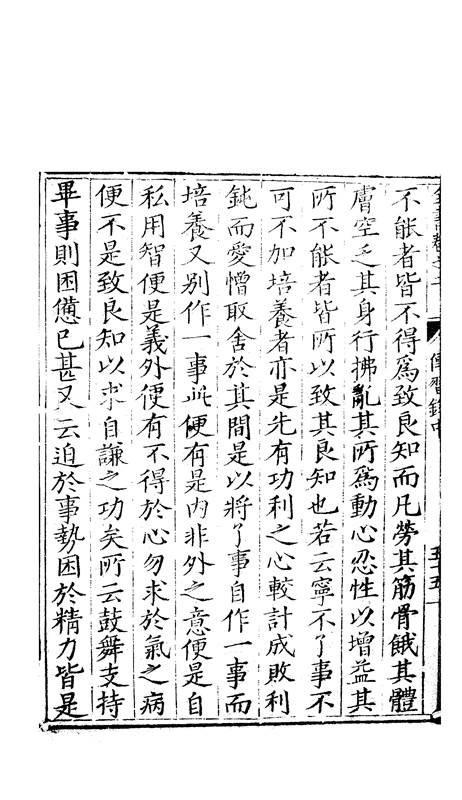 全書卷之二　傳習錄中　五十五
不能者皆不得爲致良知而凡勞其筋骨餓其體
膚空乏其身行拂亂其所爲動心忍性以增益其
所不能者皆所以致其良知也若云寧不了事不
可不加培養者亦是先有功利之心較計成敗利
鈍而愛憎取舍於其間是以將了事自作一事而
培養又別作一事此便有是內非外之意便是自
私用智便是義外便有不得於心勿求於氣之病
便不是致良知以求自謙之功矣所云鼓舞支持
畢事則困憊已甚又云迫於事勢困於精力皆是